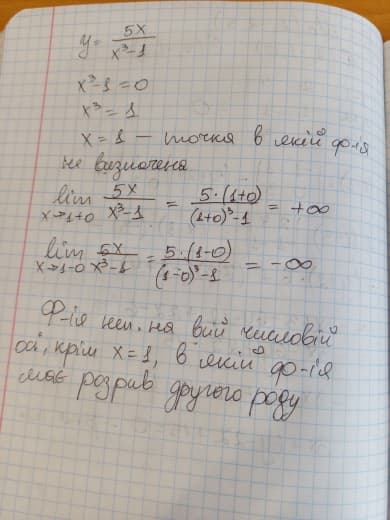 y = 5x / x³-1
x³-1=0
x³=1
x=1 — точка в якій ф-ія
не визначена
lim x→1+0 5x / x³-1 = 5·(1+0) / (1+0)³-1 = +∞
lim x→1-0 5x / x³-1 = 5·(1-0) / (1-0)³-1 = -∞
Ф-ія неп. на всій числовій
осі, крім x=1, в якій ф-ія
має розрив другого роду